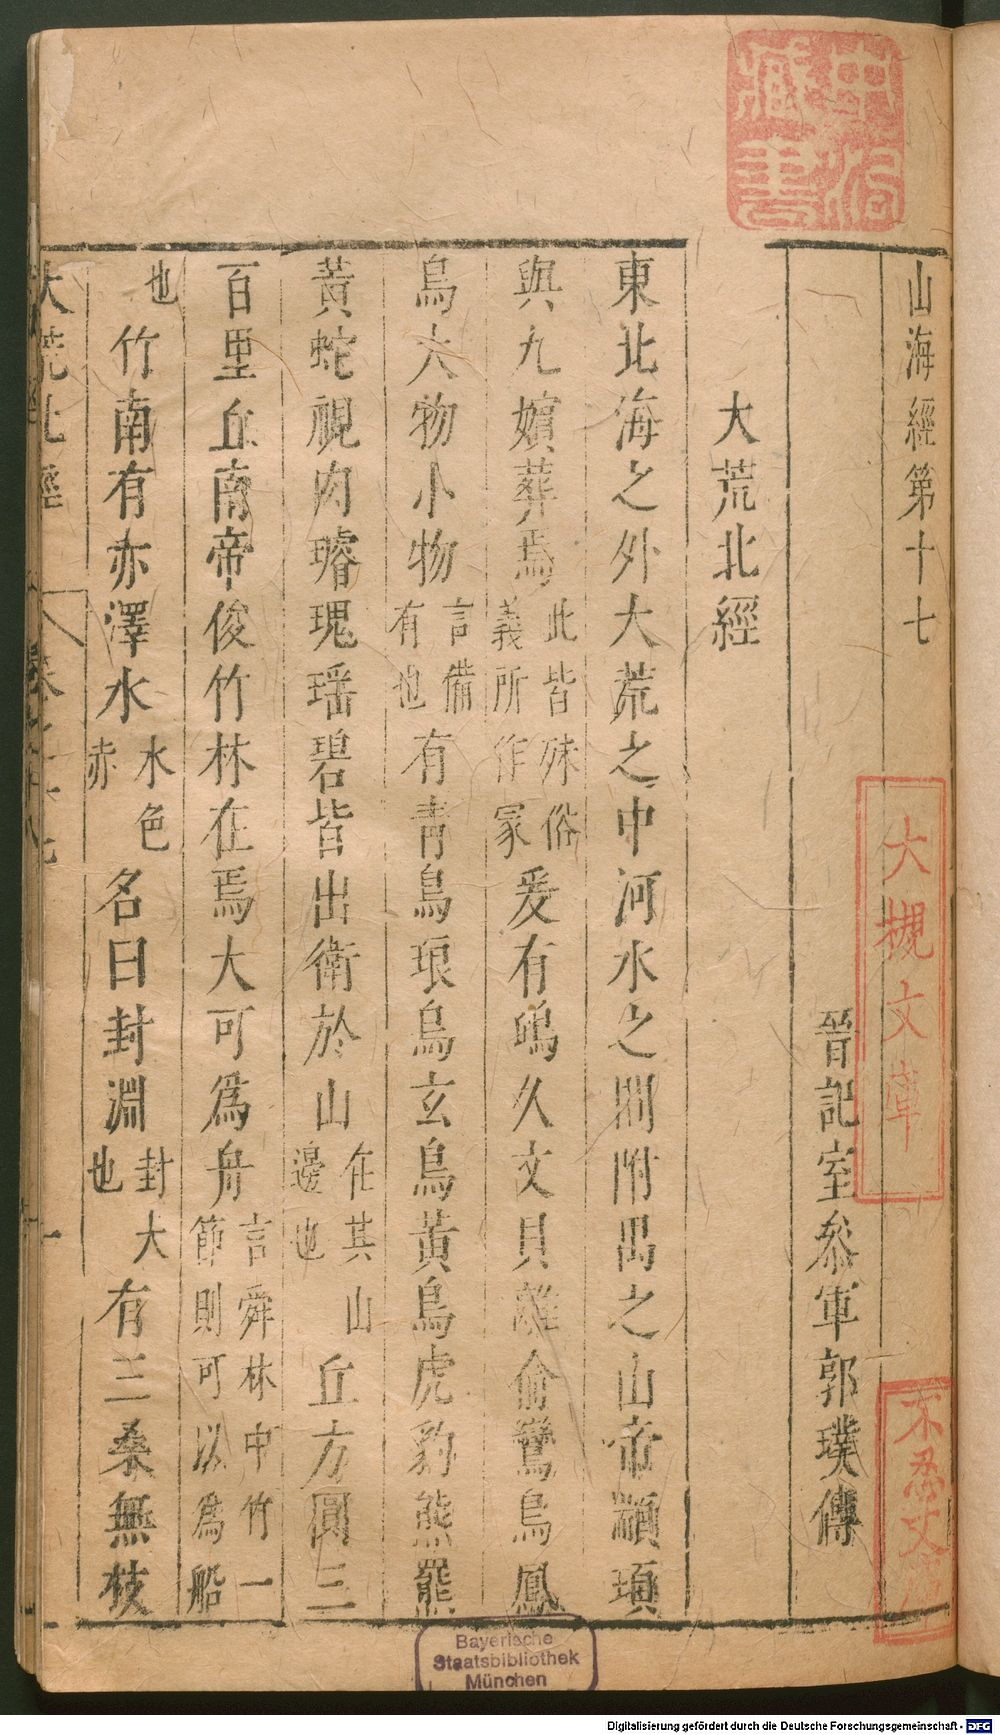 山海經第十七
晉記室叅軍郭璞傳
大荒北經
東北海之外大荒之中河水之間附禺之山帝顓頊
與九嬪葬焉此皆殊俗義所作冢爰有鴟久文貝離俞鸞鳥鳳
鳥大物小物言備有也有青鳥琅鳥玄鳥黃鳥虎豹熊羆
黃蛇視肉璿瑰瑶碧皆出衛於山在其山邊也丘方圓三
百里丘南帝俊竹林在焉大可為舟言舜林中竹一節則可以為船
也竹南有赤澤水水色赤名曰封淵封大也有三桑無枝
大荒北經
一
藏書
大槻文庫
不忍文庫
Bayerische
Staatsbibliothek
München
Digitalisierung gefördert durch die Deutsche Forschungsgemeinschaft - DFG